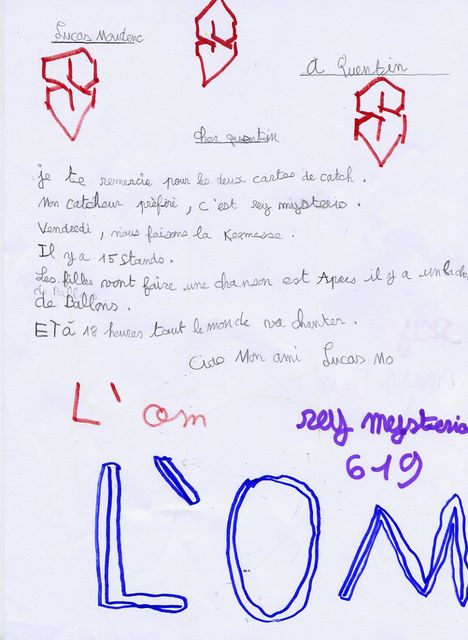 Lucas Moudenc
A Quentin
cher quentin
je te remercie pour les deux cartes de catch.
Mon catcheur préféré, c'est rey mysterio.
Vendredi, nous faisons la Kermesse.
Il y a 15 stands.
Les filles vont faire une chanson est Après il y a un lacher
de Ballons.
ET à 18 heures tout le monde va chanter.
Ciao Mon ami Lucas Mo
L'om
rey mysterio
619
L'OM